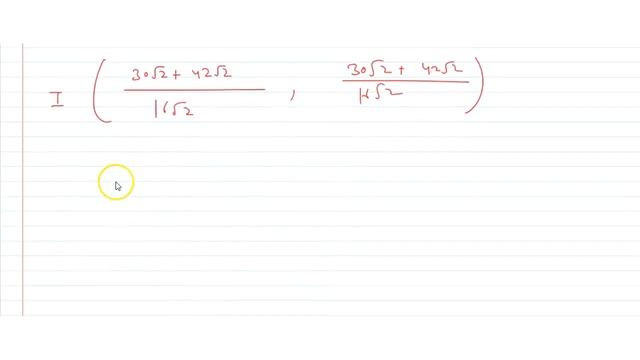 I ( 30√2 + 42√2 / 16√2 , 30√2 + 42√2 / 16√2 )